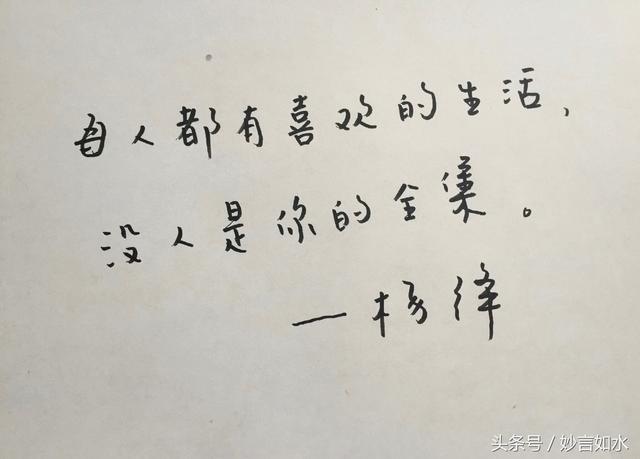 每人都有喜欢的生活，
没人是你的全集。
—杨绛
头条号／妙言如水